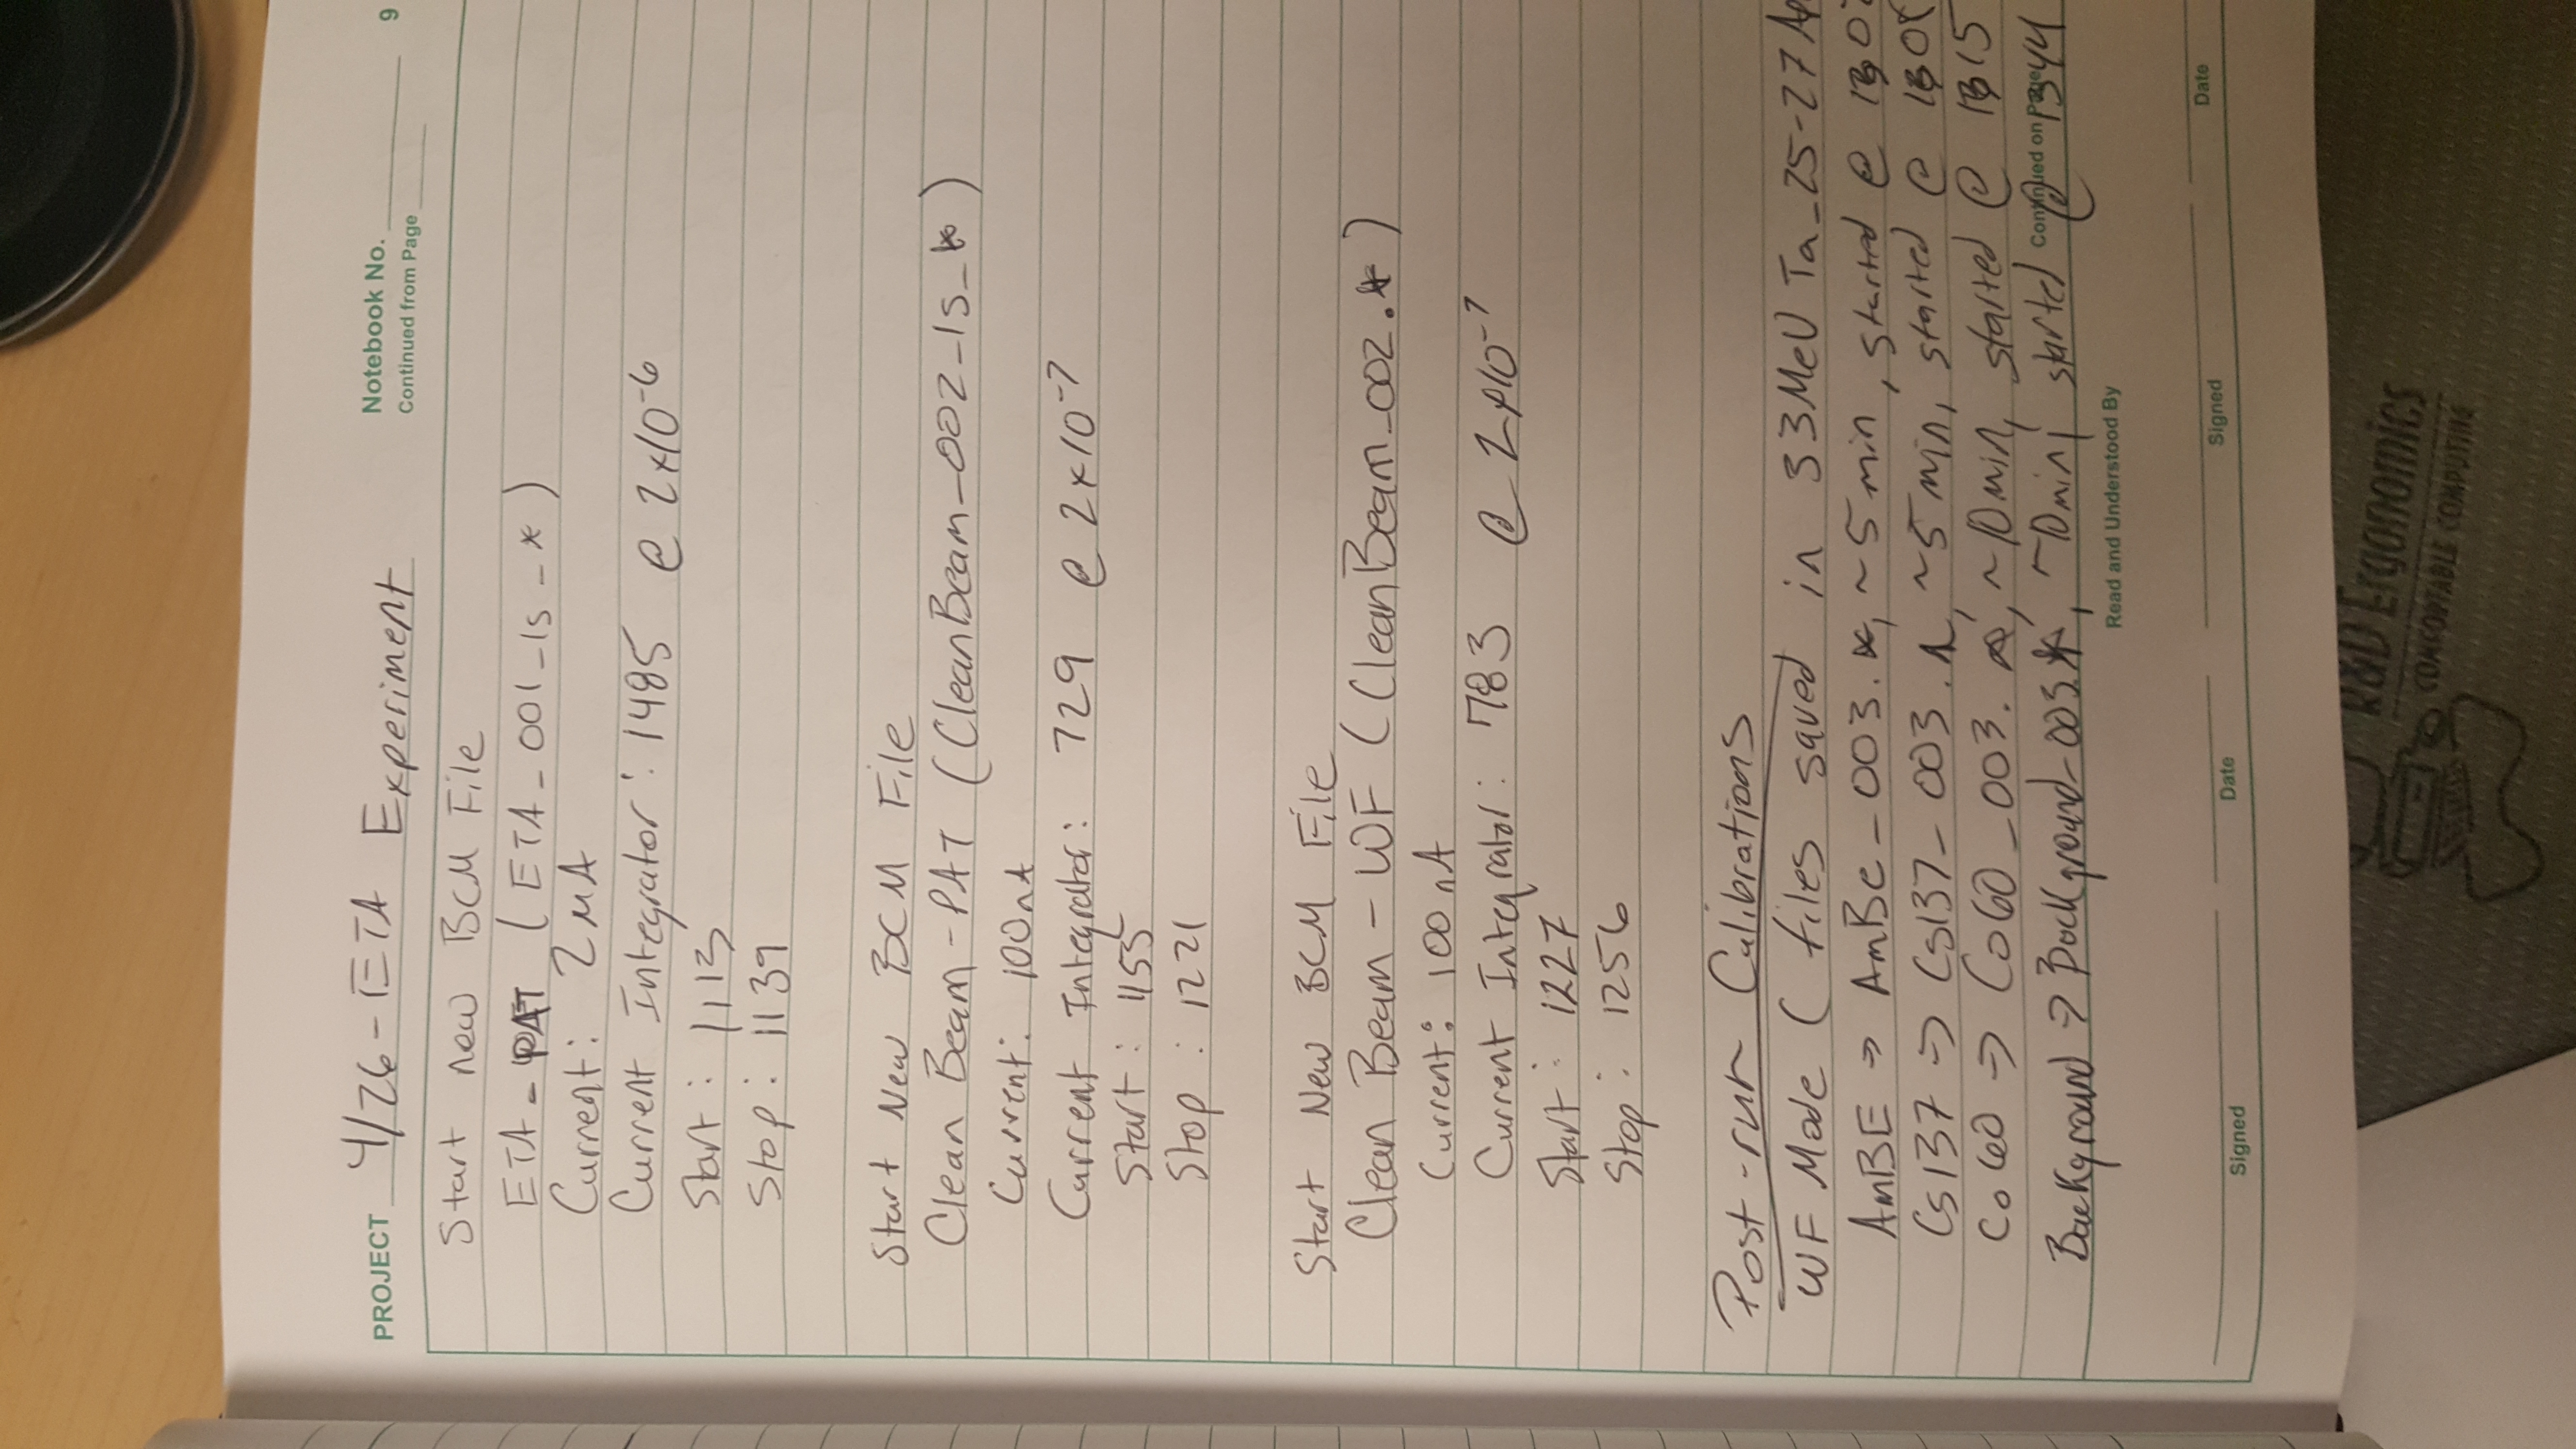 PROJECT 4/26 - ETA Experiment
Notebook No.
Continued from Page
9
Start new BCM File
ETA - PAT (ETA_001_1s_*)
Current: 2 μA
Current Integrator: 1485 @ 2x10⁻⁶
Start: 1113
Stop: 1139
Start New BCM File
Clean Beam - PAT (CleanBeam_002_1s_*)
Current: 100nA
Current Integrator: 729 @ 2x10⁻⁷
Start: 1155
Stop: 1221
Start New BCM File
Clean Beam - WF (CleanBeam_002.*)
Current: 100nA
Current Integrator: 783 @ 2x10⁻⁷
Start: 1227
Stop: 1256
Post-run Calibrations
WF Mode (files saved in 33MeV Ta_25-27
AmBE ⇒ AmBe_003.*, ~5min, started @
Cs137 ⇒ Cs137_003.*, ~5min, started @
Co60 ⇒ Co60_003.*, ~10min, started @ 1315
Background ⇒ Background_003.*, ~10min, started @ 1344
Continued on Page
Read and Understood By
Signed
Date
Signed
Date
R&D Ergonomics
COMFORTABLE COMPUTING